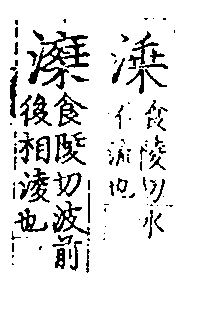 溗
食陵切水
不流也
食陵切波前
後相淩也